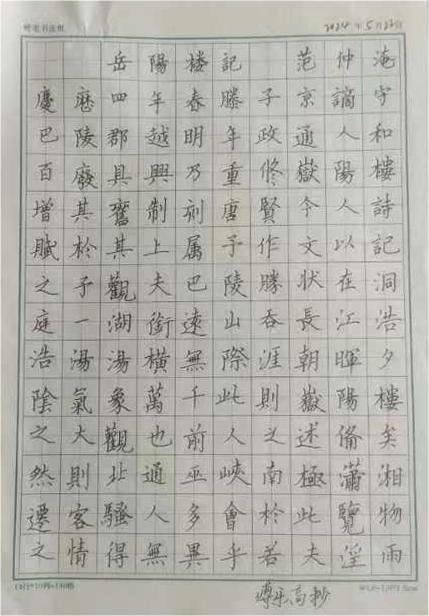 2024年5月23日
岳陽楼記 范仲淹
慶曆四年春滕子京謫守
巴陵郡越明年政通人和
百廢具興乃重修嶽陽樓
增其舊制刻唐賢今人詩
賦於其上属予作文以記
之予觀夫巴陵勝狀在洞
庭一湖銜遠山吞長江浩
浩湯湯橫無際涯朝暉夕
陰氣象萬千此則嶽陽樓
之大觀也前人之述俻矣
然則北通巫峽南極瀟湘
遷客騷人多會於此覽物
之情得無異乎若夫淫雨
14行*10列=140格